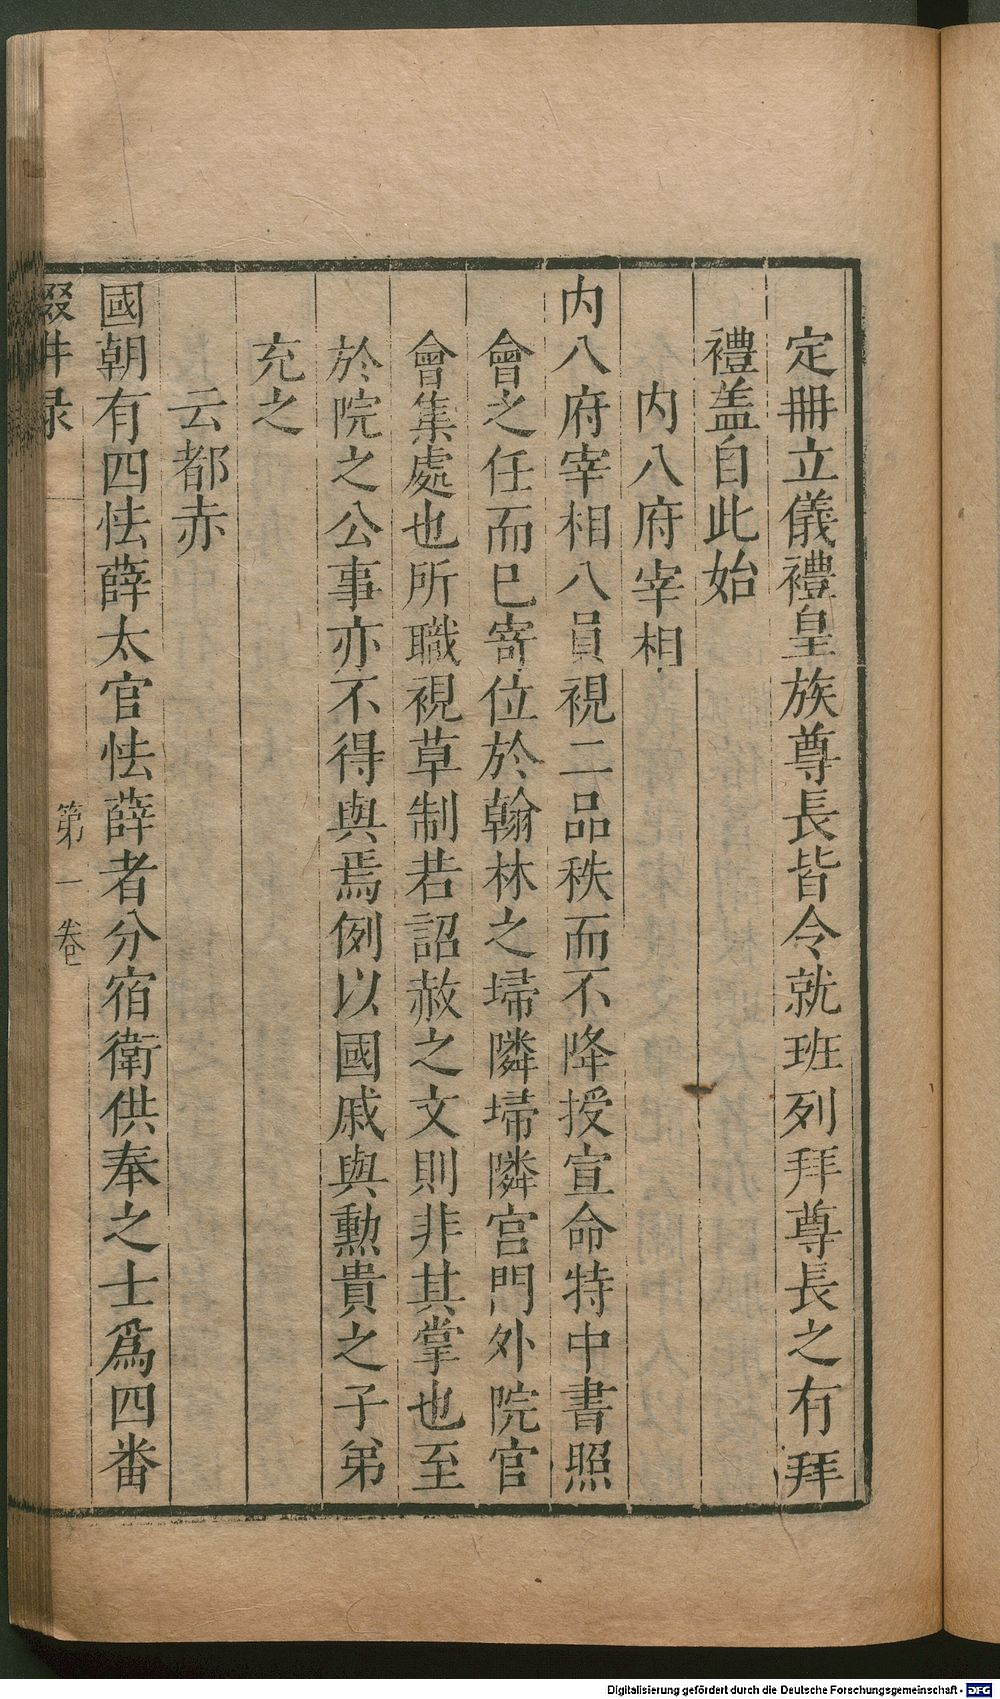 定冊立儀禮皇族尊長皆令就班列拜尊長之有拜
禮盖自此始
内八府宰相
内八府宰相八員視二品秩而不降授宣命特中書照
會之任而已寄位於翰林之埽隣埽隣宫門外院官
會集處也所職視草制若詔赦之文則非其掌也至
於院之公事亦不得與焉例以國戚與勲貴之子弟
充之
云都赤
國朝有四怯薛太官怯薛者分宿衛供奉之士爲四番
輟畊录
第一卷
Digitalisierung gefördert durch die Deutsche Forschungsgemeinschaft - DFG